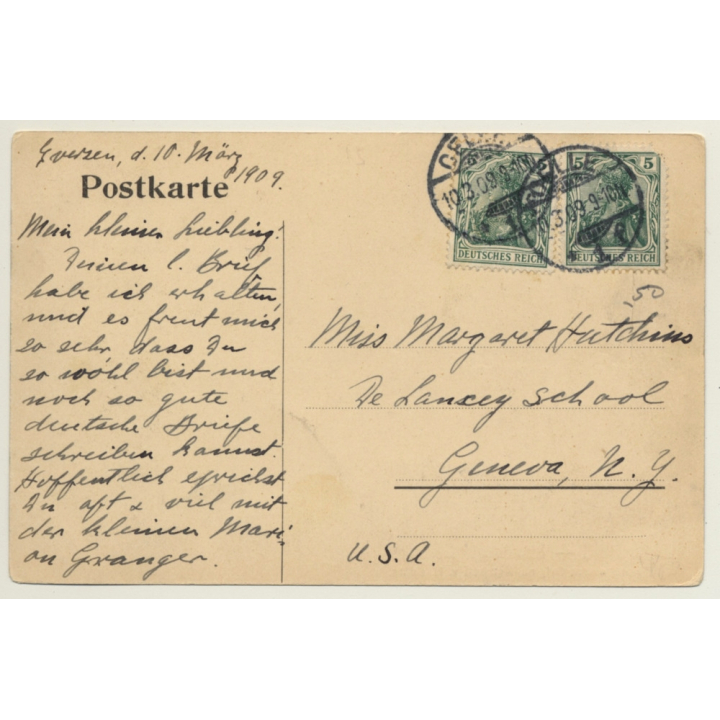 Eversen, d. 10. März
1909.
Postkarte
Mein kleiner Liebling!
Deinen l. Brief
habe ich erhalten,
und es freut mich
so sehr, dass Du
so wohl bist und
noch so gute
deutsche Briefe
schreiben kannst.
Hoffentlich sprichst
Du oft & viel mit
der kleinen Mari-
on Granger.
CELLE
10.3.09.9-10V
DEUTSCHES REICH
CELLE
3.09.9-10V
5
5
DEUTSCHES REICH
,50
Miss Margaret Hutchins
De Lancey School
Geneva, N.Y.
U.S.A.